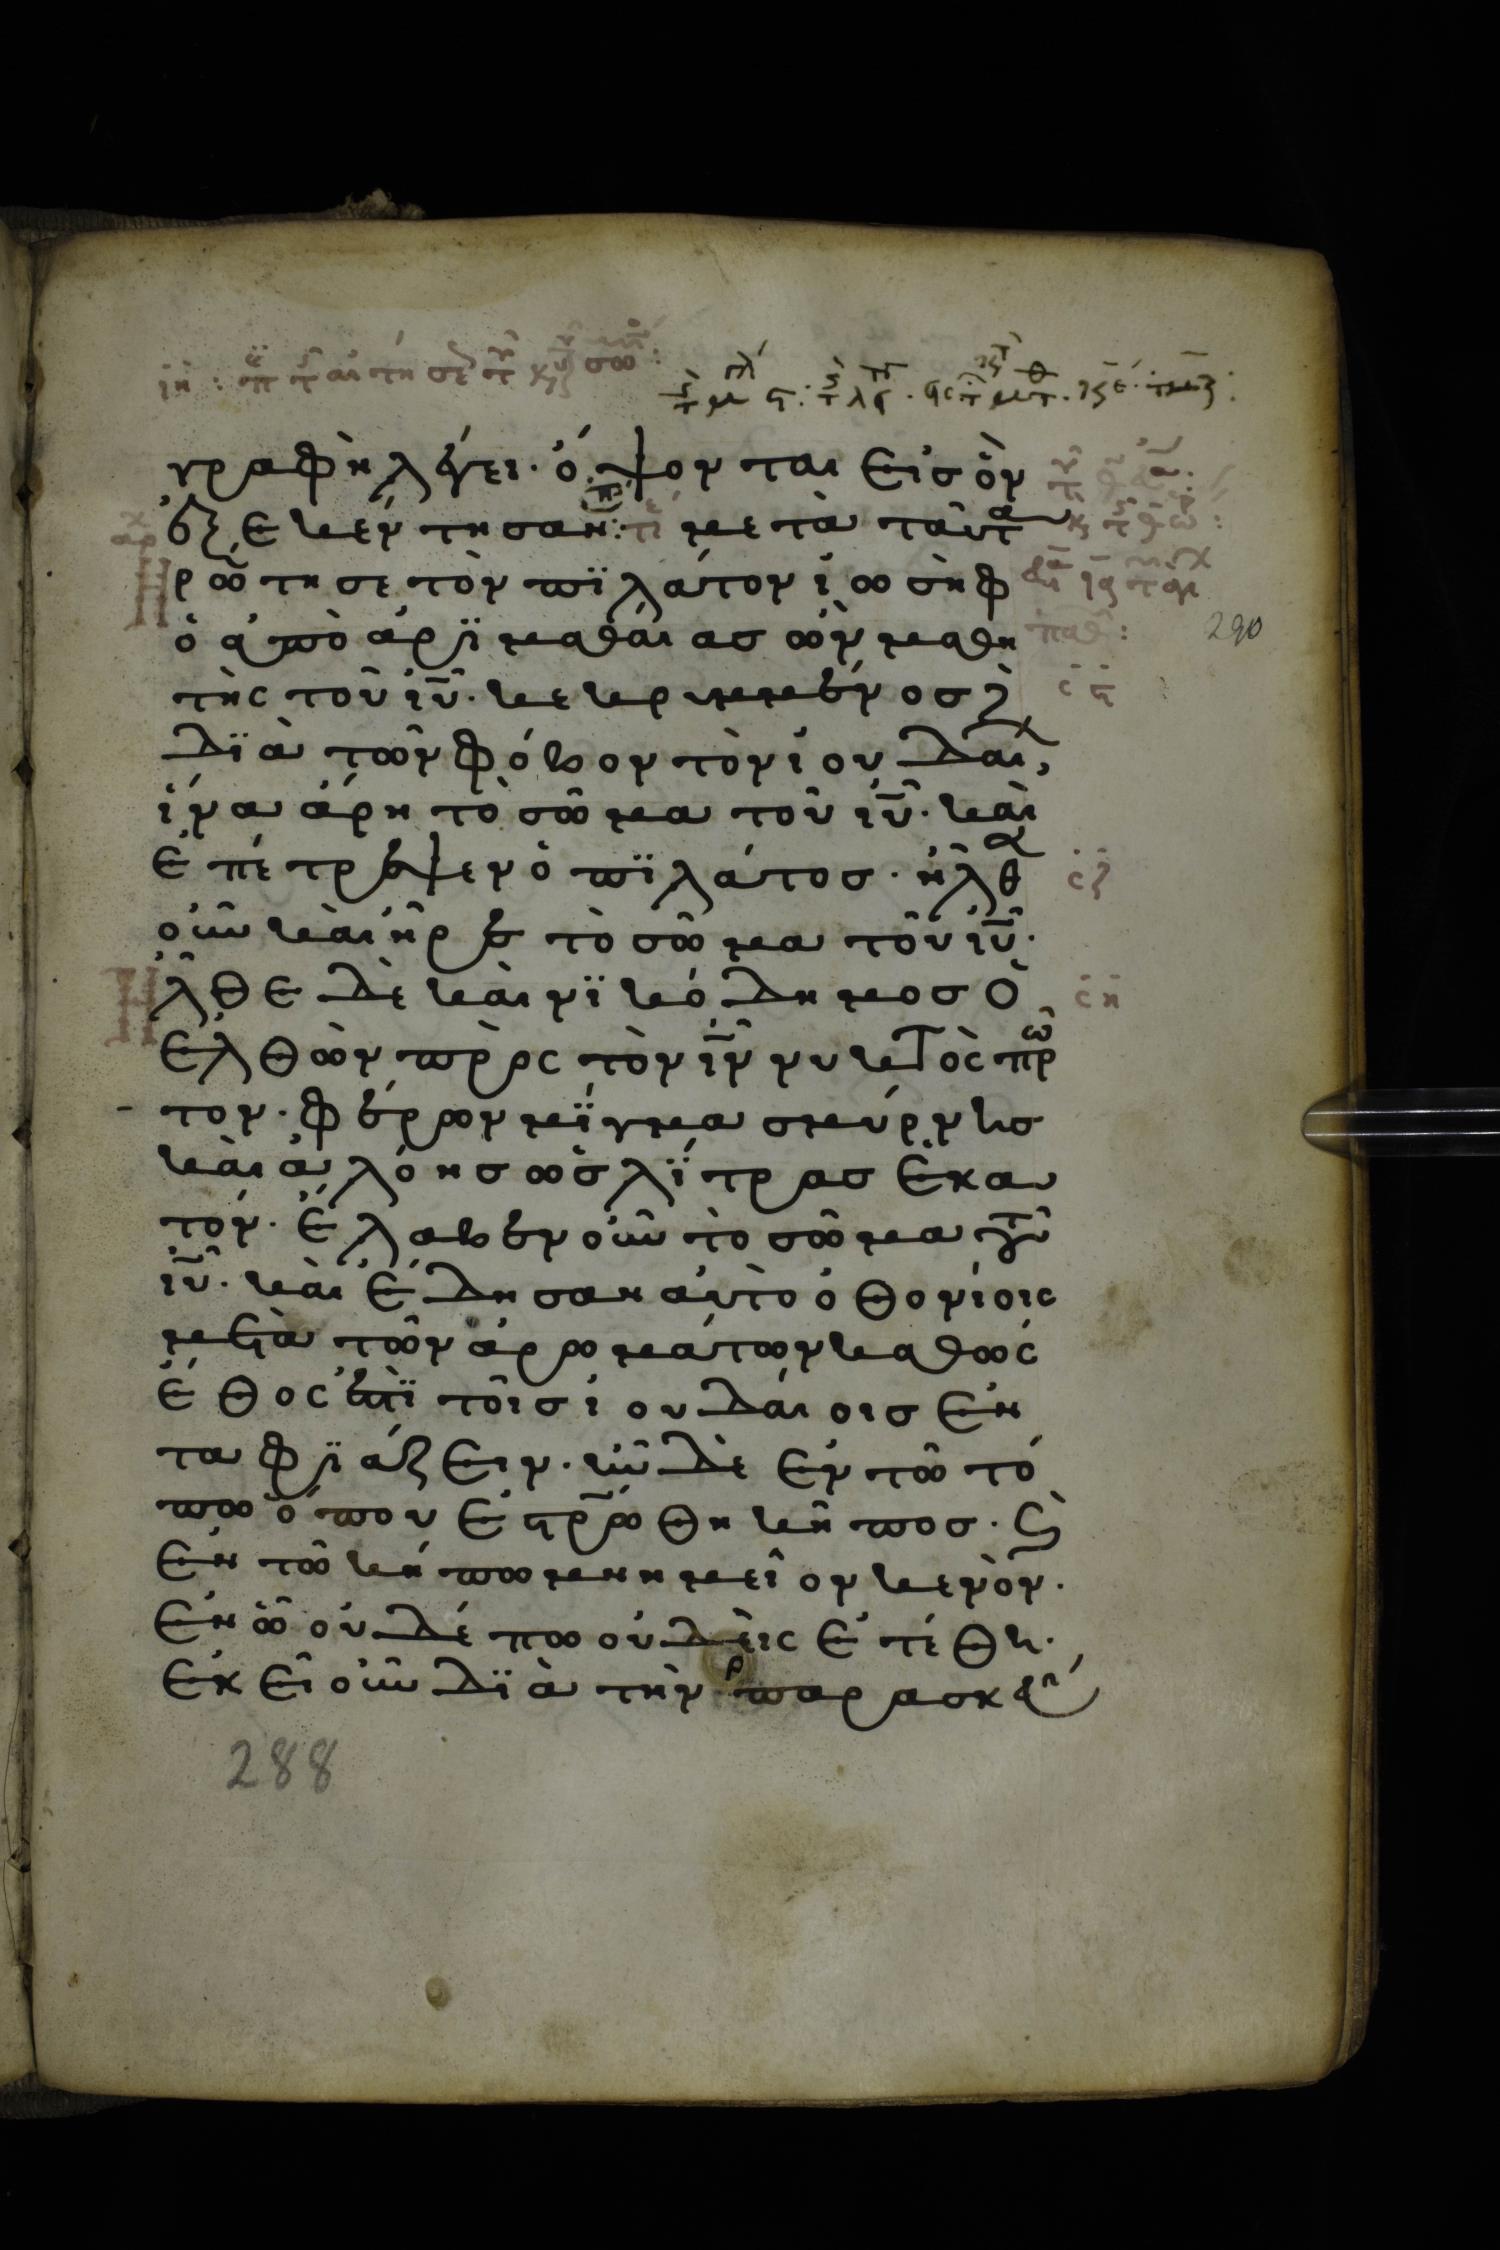 γραφὴ λέγει· ὄψονται εἰς ὃν
ἐξεκέντησαν: μετὰ ταῦτα
Ηρώτησε τὸν πϊλάτον ἰωσὴφ
ὁ ἀπὸ ἀρϊμαθαίας ὢν μαθη
τὴς τοῦ ἰῦ· κεκριμμένος δὲ
δϊὰ τὼν φόβον τὸν ἰουδαι,
ἵνα ἄρη τὸ σῶμα τοῦ ἰῦ· καὶ
ἐπέτρεψεν ὁ πϊλάτος· ἦλθ
οὖν καὶ ἦρε τὸ σῶμα τοῦ ἰῦ·
Ηλθε δὲ καὶ νϊκόδημος ὁ
ἐλθὼν πρὸς τὸν ἰν νυκτὸς πρῶ
τον· φέρρον μϊγμα σμύρνης
καὶ ἀλόης ὡς λϊτρας ἑκα
τόν· ἔλαβεν οὖν τὸ σῶμα τοῦ
ἰῦ· καὶ ἔδησαν αὐτὸ ὀθονίοις
μετὰ τῶν ἀρρομάτων καθὼς
ἔθος ἐστὶ τοῖς ἰουδαίοις ἐν
ταφϊάζειν· ἦν δὲ ἐν τῶ τό
πω ὅπου ἐστρώθη κῆπος· καὶ
ἐν τῶ κήπω μνημεῖον κενὸν·
ἐν ὧ οὐδέπω οὐδεὶς ἐτέθη·
ἐκεῖ οὖν δϊὰ τὴν παρασκευὴ
288
290